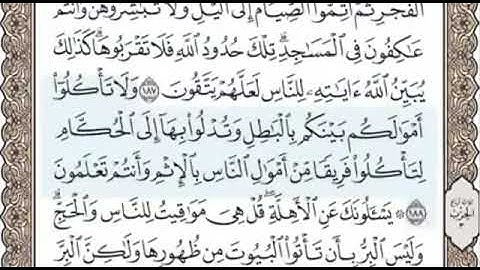 ٱلْفَجْرِ ثُمَّ أَتِمُّوا۟ ٱلصِّيَامَ إِلَى ٱلَّيْلِ وَلَا تُبَٰشِرُوهُنَّ وَأَنتُمْ
عَٰكِفُونَ فِى ٱلْمَسَٰجِدِ تِلْكَ حُدُودُ ٱللَّهِ فَلَا تَقْرَبُوهَا كَذَٰلِكَ
يُبَيِّنُ ٱللَّهُ ءَايَٰتِهِۦ لِلنَّاسِ لَعَلَّهُمْ يَتَّقُونَ ١٨٧ وَلَا تَأْكُلُوٓا۟
أَمْوَٰلَكُم بَيْنَكُم بِٱلْبَٰطِلِ وَتُدْلُوا۟ بِهَآ إِلَى ٱلْحُكَّامِ
لِتَأْكُلُوا۟ فَرِيقًا مِّنْ أَمْوَٰلِ ٱلنَّاسِ بِٱلْإِثْمِ وَأَنتُمْ تَعْلَمُونَ
١٨٨ ۞ يَسْـَٔلُونَكَ عَنِ ٱلْأَهِلَّةِ قُلْ هِىَ مَوَٰقِيتُ لِلنَّاسِ وَٱلْحَجِّ
وَلَيْسَ ٱلْبِرُّ بِأَن تَأْتُوا۟ ٱلْبُيُوتَ مِن ظُهُورِهَا وَلَٰكِنَّ ٱلْبِرَّ